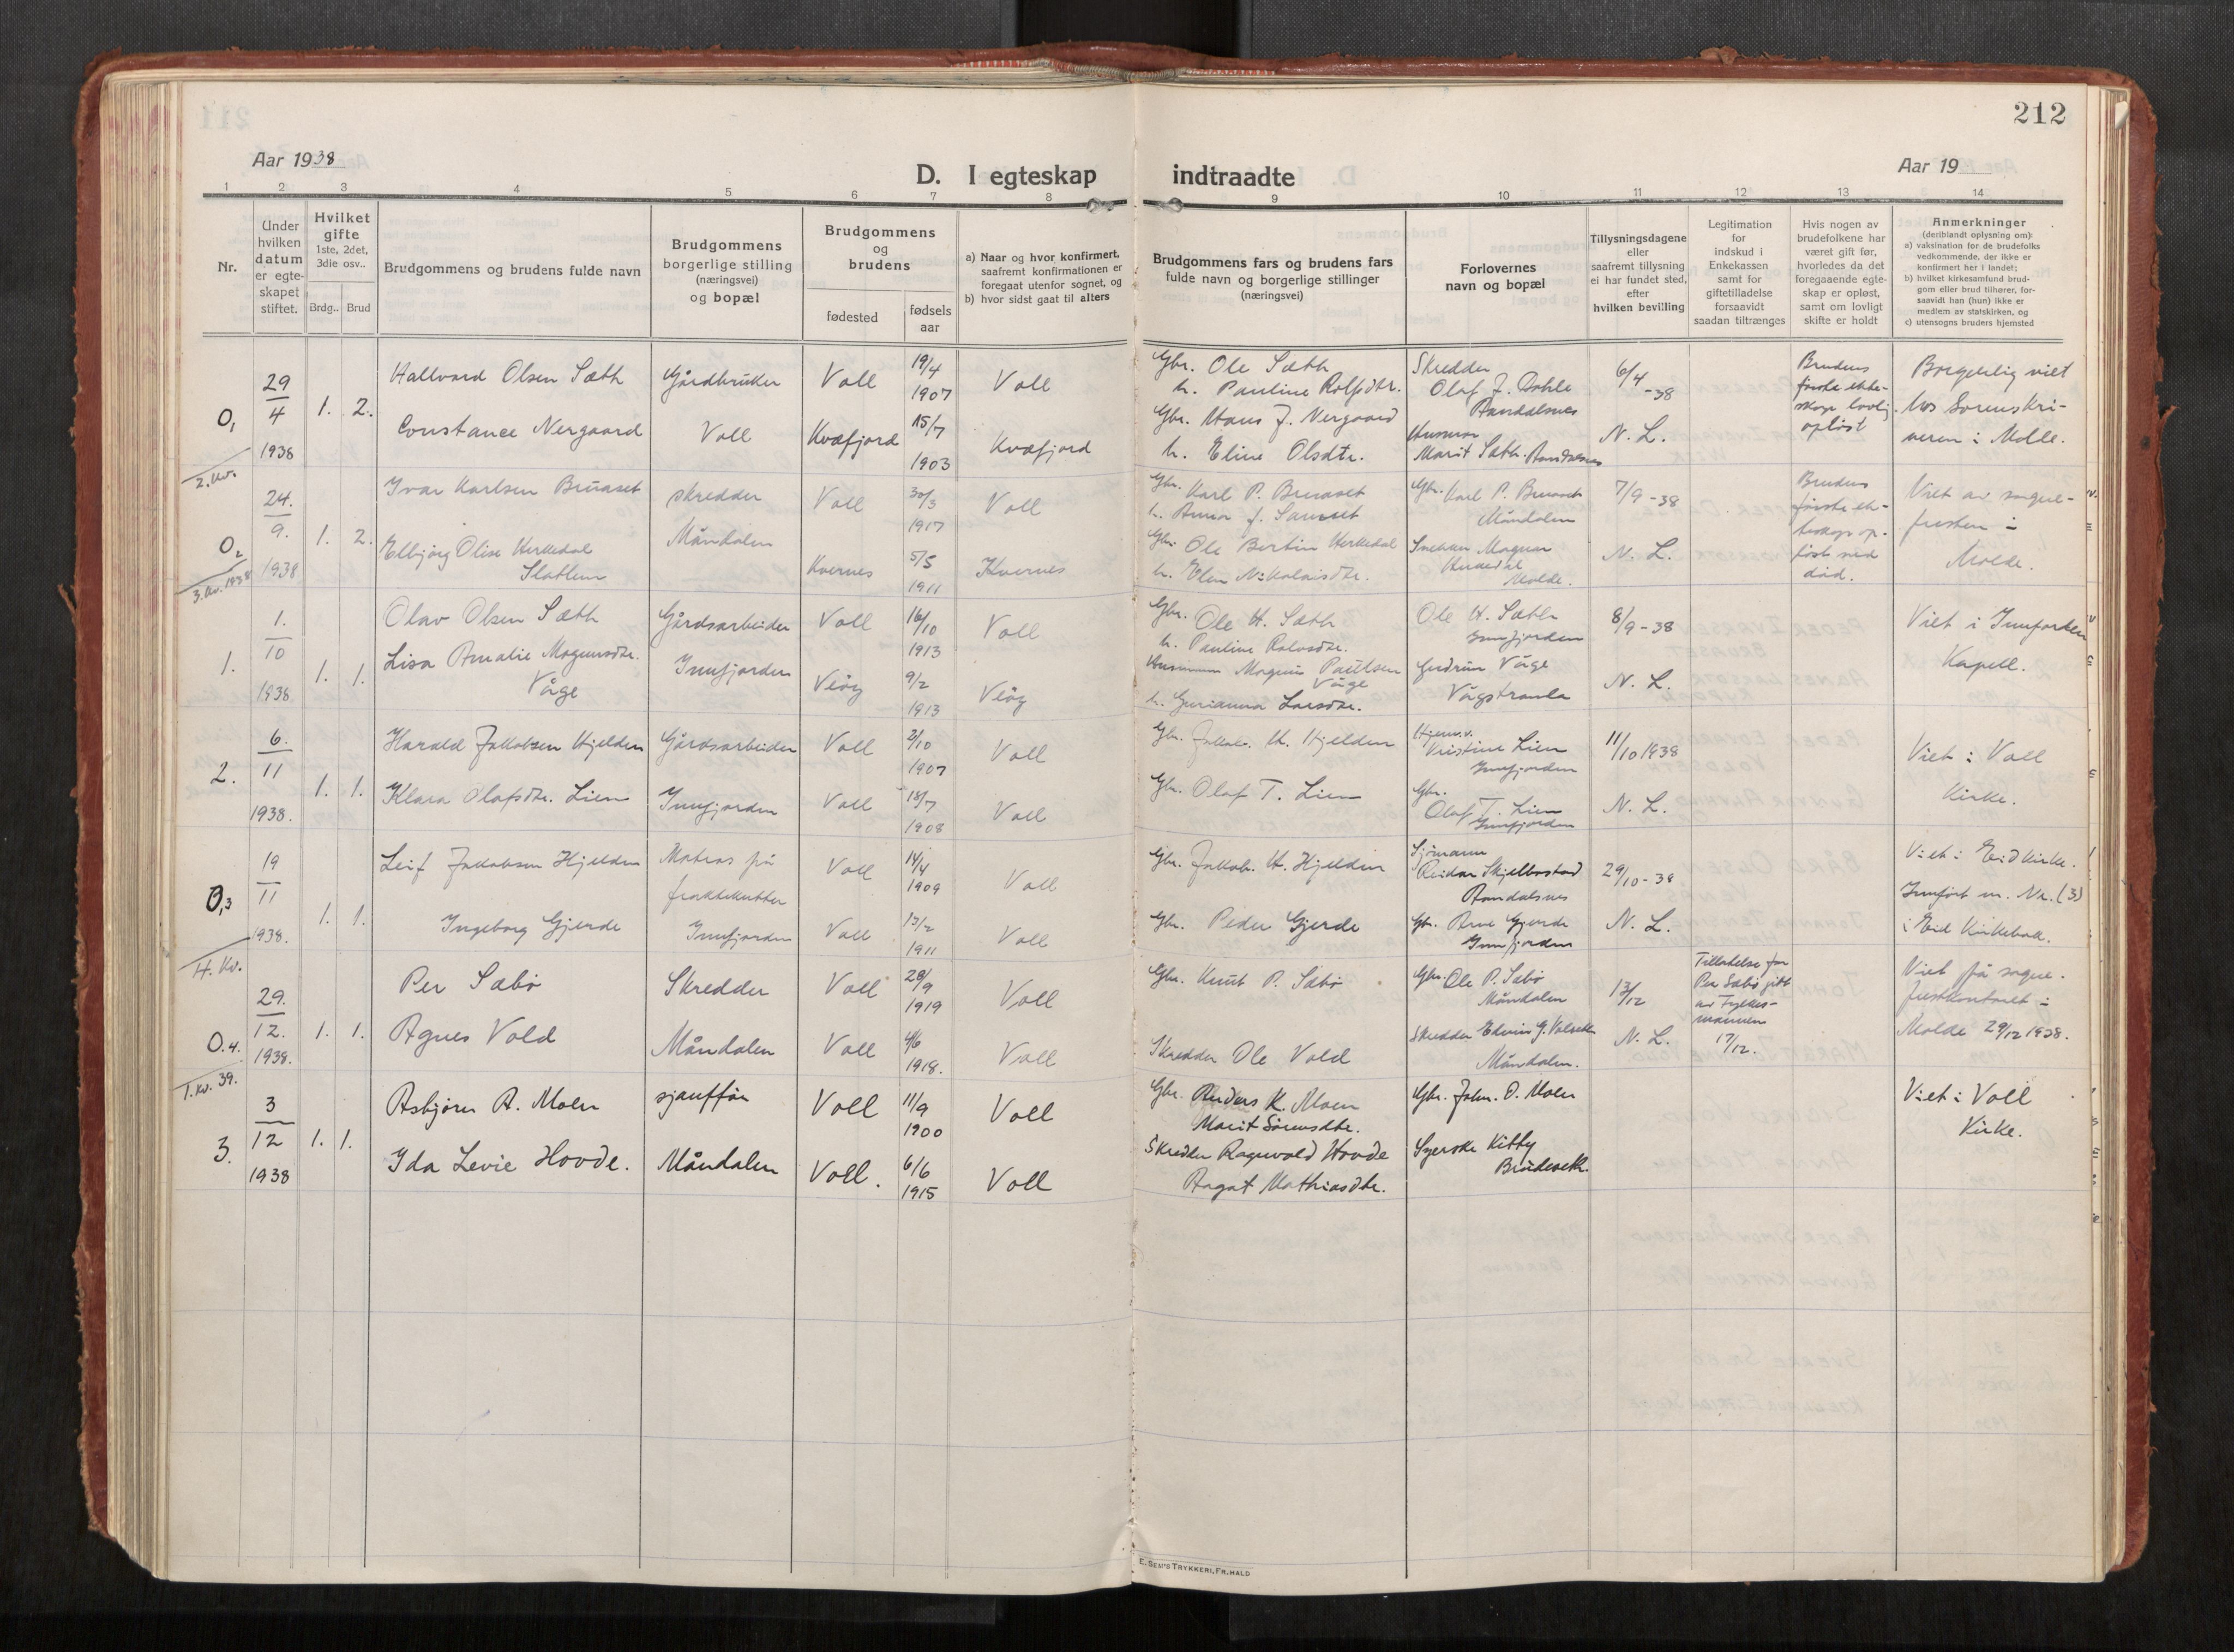 212
Aar 1938
D. I egteskap indtraadte
Aar 19
1 2 3 4 5 6 7 8 9 10 11 12 13 14
Nr.
Under
hvilken
datum
er egte-
skapet
stiftet.
Hvilket
gifte
1ste, 2det,
3die osv..
Brdg.. Brud
Brudgommens og brudens fulde navn
Brudgommens
borgerlige stilling
(næringsvei)
og bopæl
Brudgommens
og
brudens
fødested
fødsels
aar
a) Naar og hvor konfirmert,
saafremt konfirmationen er
foregaat utenfor sognet, og
b) hvor sidst gaat til alters
Brudgommens fars og brudens fars
fulde navn og borgerlige stillinger
(næringsvei)
Forlovernes
navn og bopæl
Tillysningsdagene
eller
saafremt tillysning
ei har fundet sted,
efter
hvilken bevilling
Legitimation
for
indskud i
Enkekassen
samt for
giftetilladelse
forsaavidt
saadan tiltrænges
Hvis nogen av
brudefolkene har
været gift før,
hvorledes da det
foregaaende egte-
skap er opløst,
samt om lovligt
skifte er holdt
Anmerkninger
(deriblandt oplysning om):
a) vaksination for de brudefolks
vedkommende, der ikke er
konfirmert her i landet;
b) hvilket kirkesamfund brud-
gom eller brud tilhører, for-
saavidt han (hun) ikke er
medlem av statskirken, og
c) utensogns bruders hjemsted
0,1
29/4 1938
1. 2.
Hallvard Olsen Sæth
Gårdbruker
Voll
19/4 1907
Voll
Gbr. Ole Sæth
h. Pauline Rolfsdtr.
Skredder
Olaf J. Dahle
Åndalsnes
6/4 -38
Brudens
første ekte-
skap lovlig
opløst
Borgerlig viet
hos Sorenskri-
veren i Molde.
Constance Nergaard
Voll
Kvæfjord
15/7 1903
Kvæfjord
Gbr. Hans J. Nergaard
h. Eline Olsdtr.
Husmor
Marit Sæth. Åndalsnes
N. L.
2. kv.
0,2
24./9. 1938
1. 2.
Ivar Karlsen Bruaset
skredder
Voll
30/3 1917
Voll
Gbr. Karl P. Bruaset
Gbr. Karl P. Bruaset
Måndalen
7/9 -38
Brudens
første ek-
teskap op-
løst ved
død.
Viet av sogne-
presten i
Molde.
Elbjørg Olise Herkedal
Måndalen
Kvernes
5/5 1911
Kvernes
Gbr. Ole Bertin Herkedal
h. Elen Nikolaisdtr.
Snekker Magnar
Herkedal
Molde.
N. L.
3. kv. 1938
1.
1./10 1938
1. 1.
Olav Olsen Sæth
Gårdsarbeider
Voll
16/10 1913
Voll
Gbr. Ole H. Sæth
h. Pauline Rolvsdtr.
Ole H. Sæth
Innfjorden
8/9 -38
Viet i Innfjorden
Kapell.
Lisa Amalie Magnusdtr.
Våge
Innfjorden
Veøy
9/2 1913
Veøy
Magnus Paulsen
Våge
h. Gurianna Larsdtr.
Gudrun Våge
Vågstranda
N. L.
2.
6./11 1938.
1. 1.
Harald Jakobsen Hjelden
Gårdsarbeider
Voll
2/10 1907
Voll
Gbr. Jakob. H. Hjelden
Hjemv.
Kristine Lien
Innfjorden
11/10 1938
Viet i Voll
Kirke.
Klara Olafsdtr. Lien
Innfjorden
Voll
18/7 1908
Voll
Gbr. Olaf T. Lien
Gbr.
Olaf T. Lien
Innfjorden
N. L.
0,3
19/11 1938.
1. 1.
Leif Jakobsen Hjelden
Matros på
fraktekutter
Voll
14/4 1909
Voll
Gbr. Jakob. H. Hjelden
Sjømann
Reidar Skjelbostad
Åndalsnes
29/10 - 38
Viet i Eidkirke.
Innført m. Nr. (3)
i Eid Kirkebok.
Ingeborg Gjerde
Innfjorden
Voll
13/2 1911
Voll
Gbr. Peder Gjerde
Gbr. Arne Gjerde
Innfjorden
N. L.
4. Kv.
0.4.
29./12. 1938.
1. 1.
Per Sæbø
Skredder
Voll
29/9 1919
Voll
Gbr. Knut P. Sæbø
Gbr. Ole P. Sæbø
Måndalen
13/12
Tilladelse for
Per Sæbø gitt
av Fylkes-
mannen
17/12.
Viet på sogne-
prestkontoret i
Molde 29/12 1938.
Agnes Vold
Måndalen
Voll
4/6 1918.
Voll
Skredder Ole Vold
Måndalen.
N. L.
1. kv. 39.
3.
3/12 1938
1. 1.
Asbjørn A. Moen
sjauffør
Voll
11/9 1900
Voll
Gbr. Anders K. Moen
Marit Sørensdtr.
Gbr. John. O. Moen
Viet i Voll
Kirke.
Ida Levie Hovde.
Måndalen
Voll.
6/6 1915
Voll
Skredder Ragnvald Hovde
Aagot Mathiasdtr.
Syerske Kitty
Brudeseth.
E. SEM'S TRYKKERI, FR.HALD